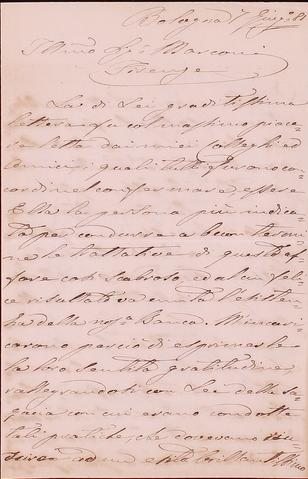 Bologna 7
Illmo Sigr Marconi
Firenze
La di Lei graditissima
lettera fu col massimo piace
re letta dai miei Colleghi ed
amici i quali tutti furono con=
cordi nel confermare, essere
Ella la persona più indica
ta per condurre a buon termi
ne le trattative di questo af
fare così scabroso, ed al cui feli=
ce risultato va unita l'esisten
za della nosa Banca. M'incari
carono perciò di esprimerle
la loro sentita gratitudine,
rallegrandosi con Lei della sa
gacia con cui erano condotte
tali pratiche, che dovevano
ad un esito brillant